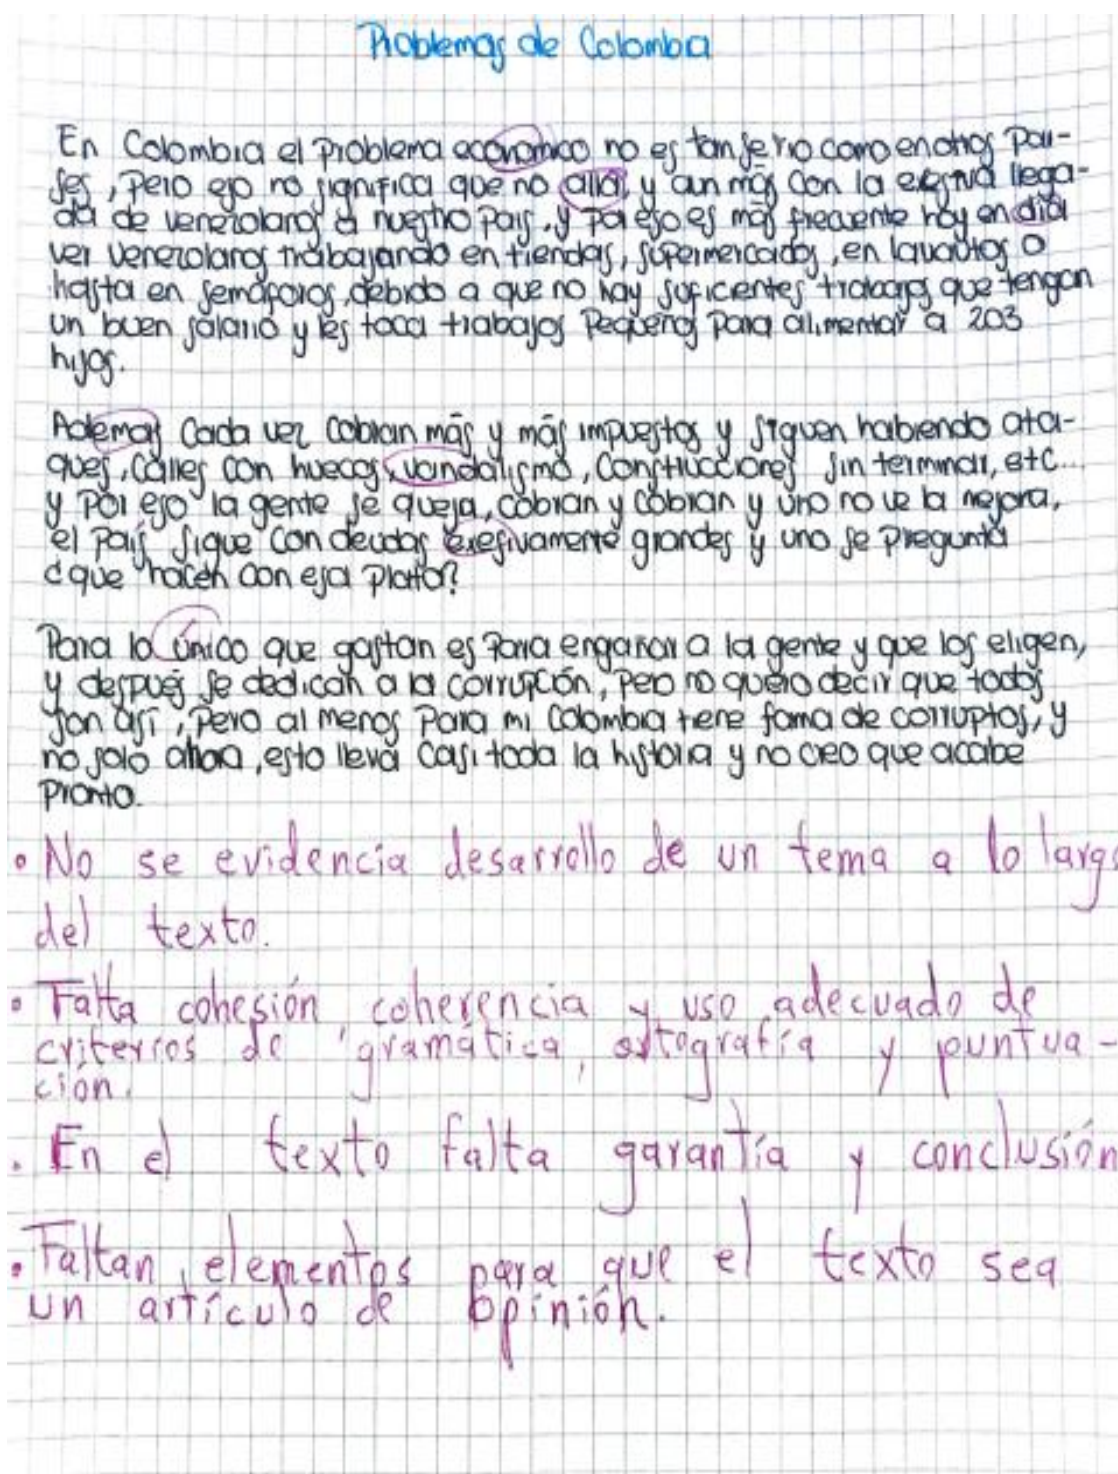 Problemas de Colombia
En Colombia el Problema económico no es tan serio como en otros pai-
ses, pero eso no significa que no alla, y aun más con la exesiva llega-
da de venezolanos a nuestro país, y por eso es más frecuente hoy en día
ver venezolanos trabajando en tiendas, supermercados, en lavautos o
hasta en semáforos, debido a que no hay suficientes trabajos que tengan
un buen salario y les toca trabajos Pequeños para alimentar a 2o3
hijos.
Ademas Cada vez cobran más y más impuestos y siguen habiendo ata-
ques, calles con huecos, vandalismo, Construcciones sin terminar, etc...
y Por eso la gente se queja, cobran y cobran y uno no ve la mejora,
el País sigue con deudas exesivamente grandes y uno se pregunta
¿que hacen con esa plata?
Para lo único que gastan es Para engañar a la gente y que los eligen,
y después se dedican a la corrupción, pero no quiero decir que todos
son así, Pero al menos Para mi Colombia tiene fama de corruptos, y
no solo ahora, esto lleva casi toda la historia y no creo que acabe
Pronto.
• No se evidencia desarrollo de un tema a lo largo
del texto.
• Falta cohesión, coherencia y uso adecuado de
criterios de gramática, ortografía y puntua-
ción.
• En el texto falta garantía y conclusión
• Faltan elementos para que el texto sea
un artículo de opinión.